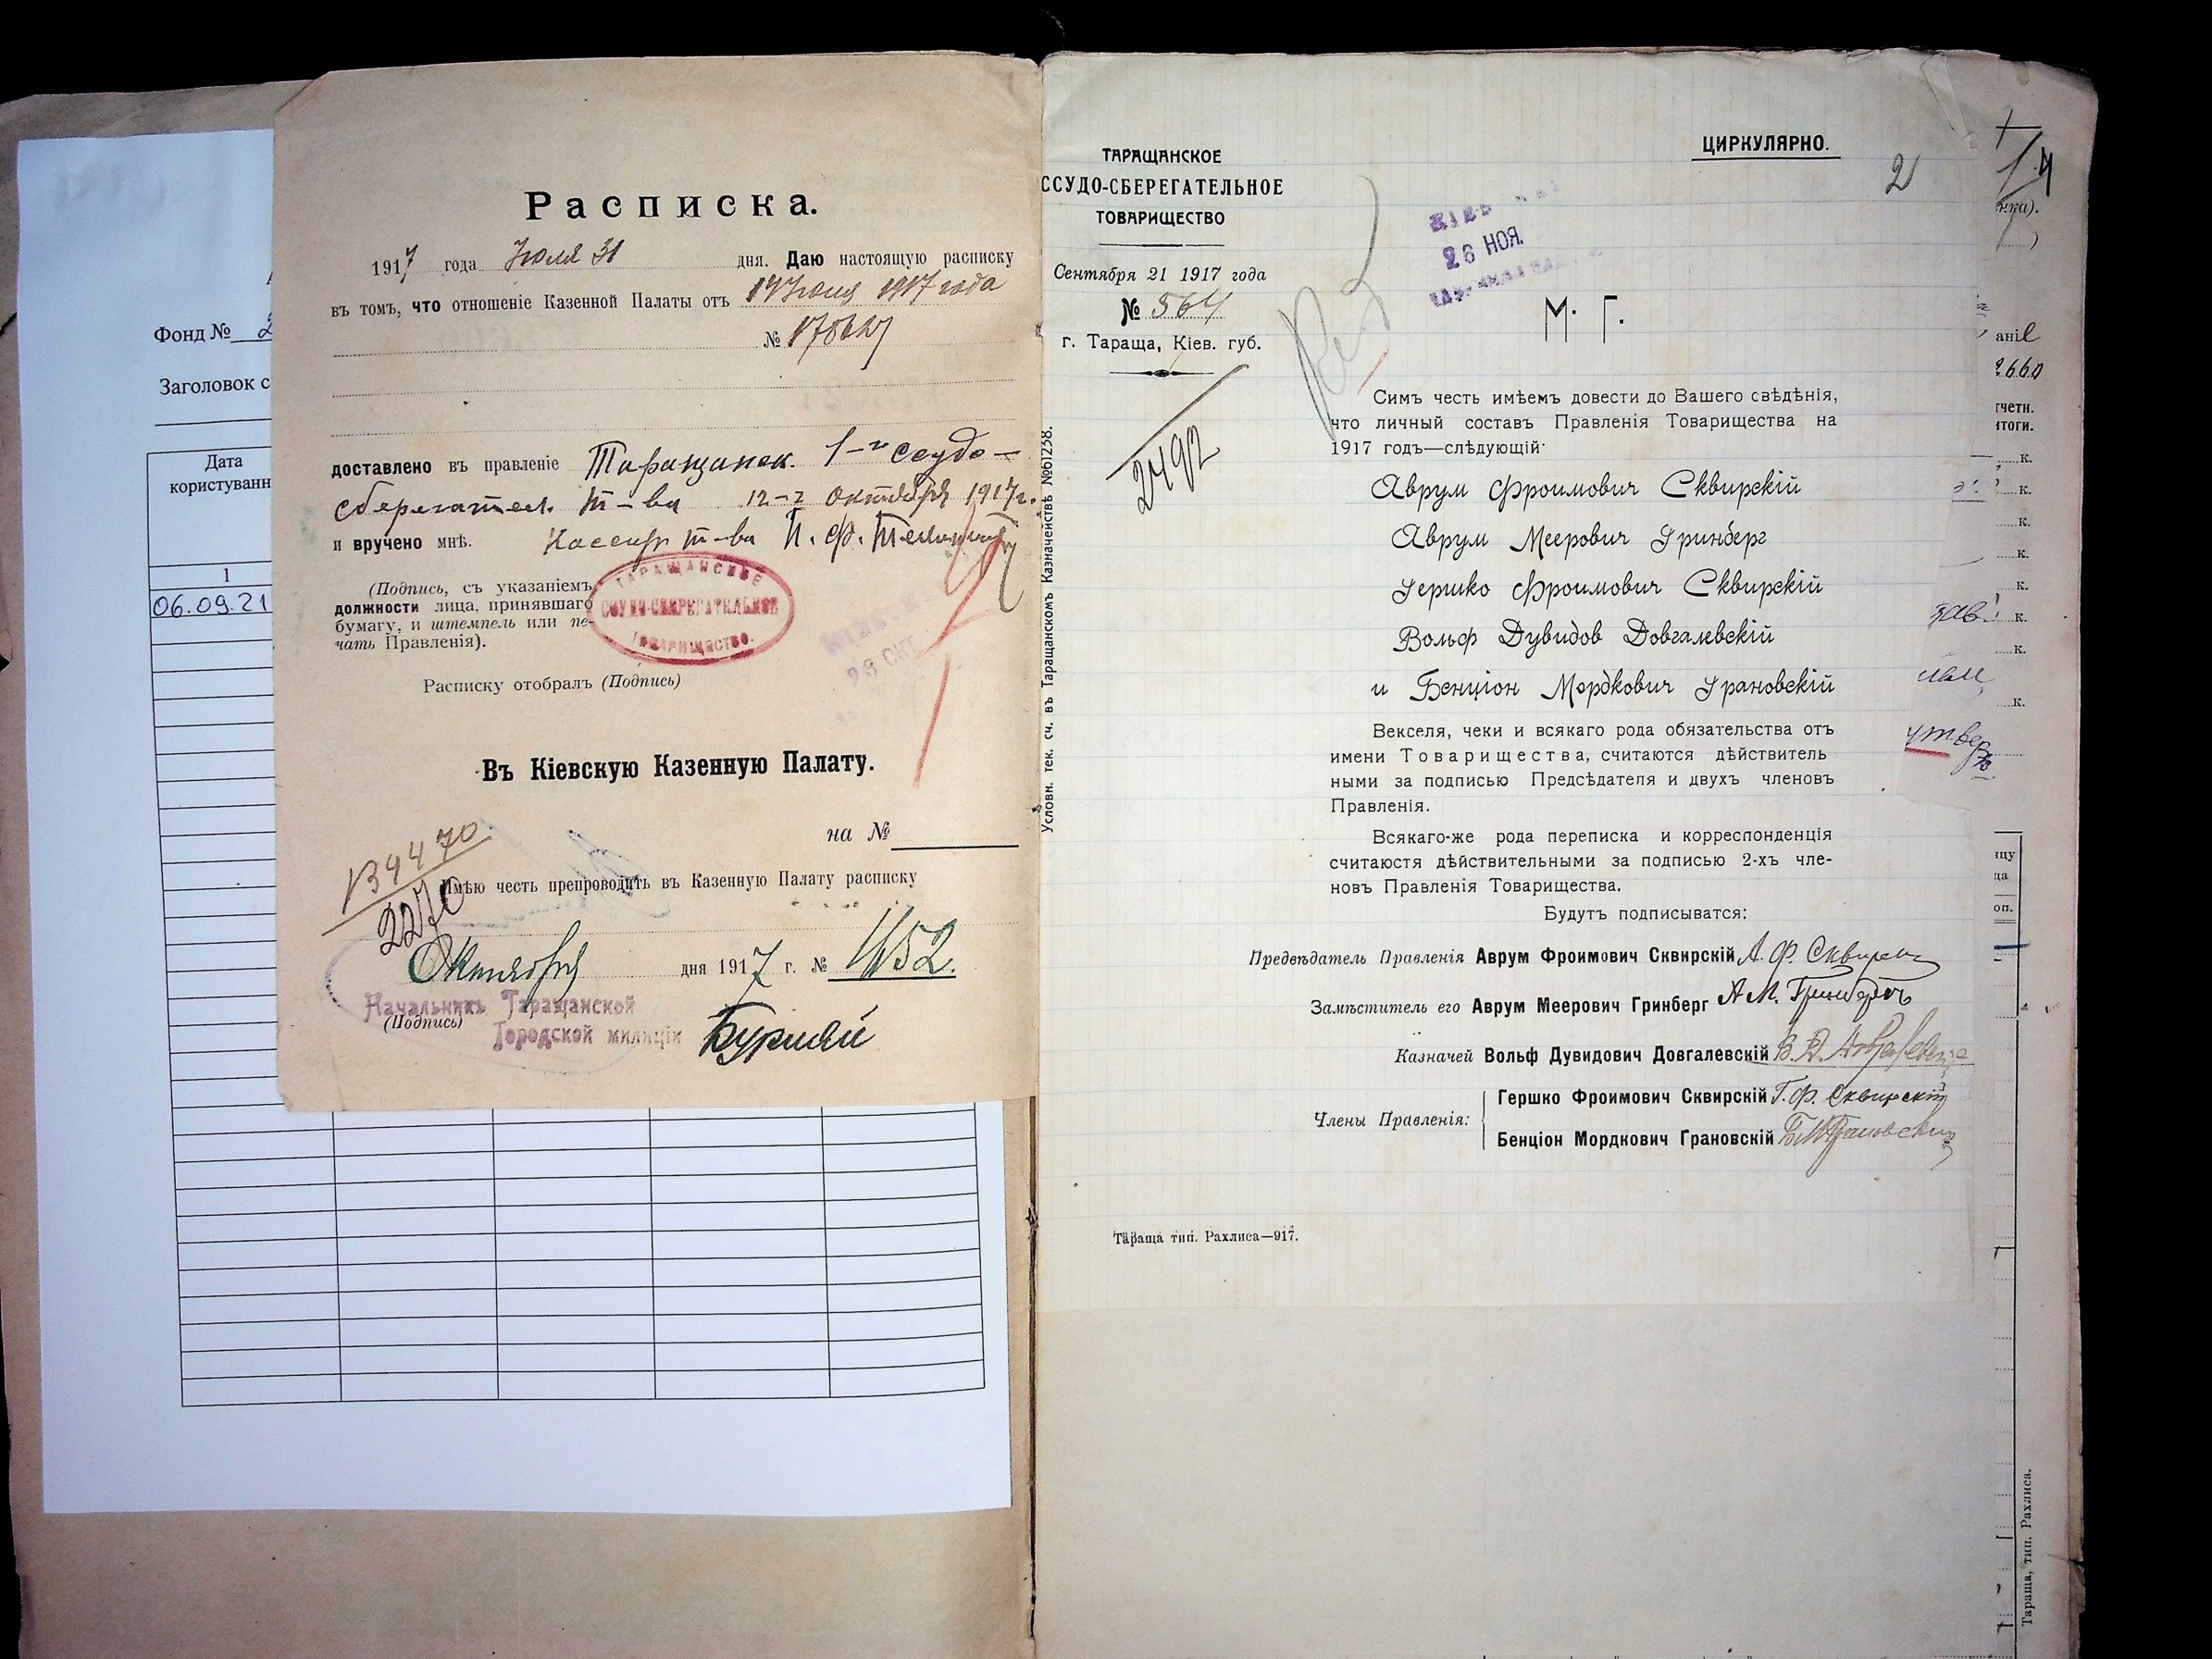 Фонд № 2
Заголовок с
Дата
користуванн
1
06.09.21
Расписка.
1917 года Июля 31 дня. Даю настоящую расписку
въ томъ, что отношеніе Казенной Палаты отъ 17 Июня 1917 года
№
доставлено въ правленіе Таращанск. 1-г ссудо-
сберегател. т-ва 12-г октября 1917 г.
и вручено мнѣ. Кассир т-ва
(Подпись, съ указаніемъ
должности лица, принявшаго
бумагу, и штемпель или пе-
чать Правленія).
ТАРАЩАНСКОЕ
ССУДО-СБЕРЕГАТЕЛЬНОЕ
ТОВАРИЩЕСТВО.
28 ОКТ.
Расписку отобралъ (Подпись)
Въ Кіевскую Казенную Палату.
на №
13470
2270
Имѣю честь препроводить въ Казенную Палату расписку
Октября дня 1917 г. № 1152.
Начальникъ Таращанской
(Подпись)
Городской милиціи
ЦИРКУЛЯРНО.
2
ТАРАЩАНСКОЕ
ССУДО-СБЕРЕГАТЕЛЬНОЕ
ТОВАРИЩЕСТВО
Сентября 21 1917 года
№ 564
г. Тараща, Кіев. губ.
2492
26 НОЯ.
М. Г.
Симъ честь имѣемъ довести до Вашего свѣдѣнія,
что личный составъ Правленія Товарищества на
1917 годъ—слѣдующій:
Аврум Фроимович Сквирскій
Аврум Меерович Гринберг
Гершко Фроимович Сквирскій
Вольф Дувидов Довгалевскій
и Бенціон Мордкович Грановскій
Векселя, чеки и всякаго рода обязательства отъ
имени Товарищества, считаются дѣйствитель
ными за подписью Предсѣдателя и двухъ членовъ
Правленія.
Всякаго-же рода переписка и корреспонденція
считаюстя дѣйствительными за подписью 2-хъ чле-
новъ Правленія Товарищества.
Будутъ подписыватся:
Предвѣдатель Правленія Аврум Фроимович Сквирскій А. Ф. Сквирскій
Замѣститель его Аврум Меерович Гринберг А М. Гринбергъ
Казначей Вольф Дувидович Довгалевскій В. Д. Довгалевскій
Члены Правленія:
Гершко Фроимович Сквирскій Г. Ф. Сквирскій
Бенціон Мордкович Грановскій Б М Грановскій
Тараща тип. Рахлиса—917.
Условн. тек. сч. въ Таращанскомъ Казначействѣ №61238.
нка).
аніе
2660
тчетн.
итоги.
к.
к.
к.
к.
к.
к.
к.
к.
утвер
оп.
Тараща, тип. Рахлиса.